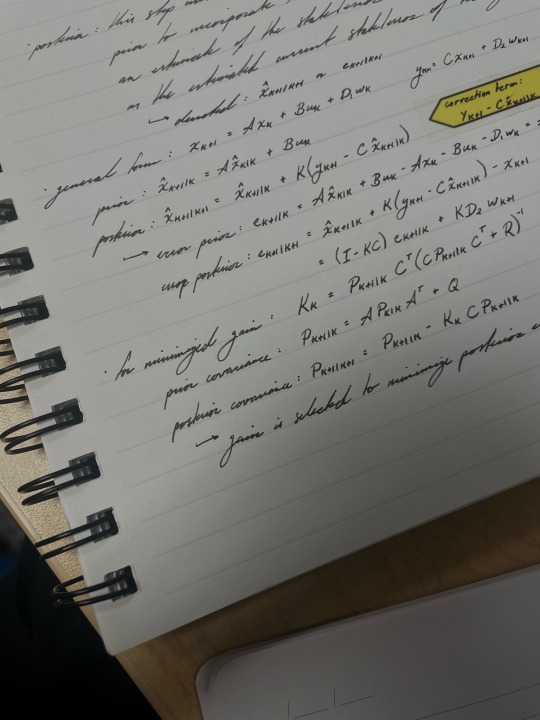 · posterior: this step
prior to incorporate
an estimate of the state
on the estimated current state/error of
→ denoted: x̂ₖ₊₁|ₖ₊₁ or eₖ₊₁|ₖ₊₁
yₖ₊₁ = Cxₖ₊₁ + D₂wₖ₊₁
correction term:
yₖ₊₁ - Cx̂ₖ₊₁|ₖ
· general form: xₖ₊₁ = Axₖ + Buₖ + D₁wₖ
prior: x̂ₖ₊₁|ₖ = Ax̂ₖ|ₖ + Buₖ
posterior: x̂ₖ₊₁|ₖ₊₁ = x̂ₖ₊₁|ₖ + K(yₖ₊₁ - Cx̂ₖ₊₁|ₖ)
→ error prior: eₖ₊₁|ₖ = Ax̂ₖ|ₖ + Buₖ - Axₖ - Buₖ - D₁wₖ =
error posterior: eₖ₊₁|ₖ₊₁ = x̂ₖ₊₁|ₖ + K(yₖ₊₁ - Cx̂ₖ₊₁|ₖ) - xₖ₊₁
= (I - KC) eₖ₊₁|ₖ + KD₂wₖ₊₁
· for minimized gain: Kₖ = Pₖ₊₁|ₖ Cᵀ(CPₖ₊₁|ₖ Cᵀ + R)⁻¹
prior covariance: Pₖ₊₁|ₖ = APₖ|ₖ Aᵀ + Q
posterior covariance: Pₖ₊₁|ₖ₊₁ = Pₖ₊₁|ₖ - Kₖ CPₖ₊₁|ₖ
→ gain is selected to minimize posterior